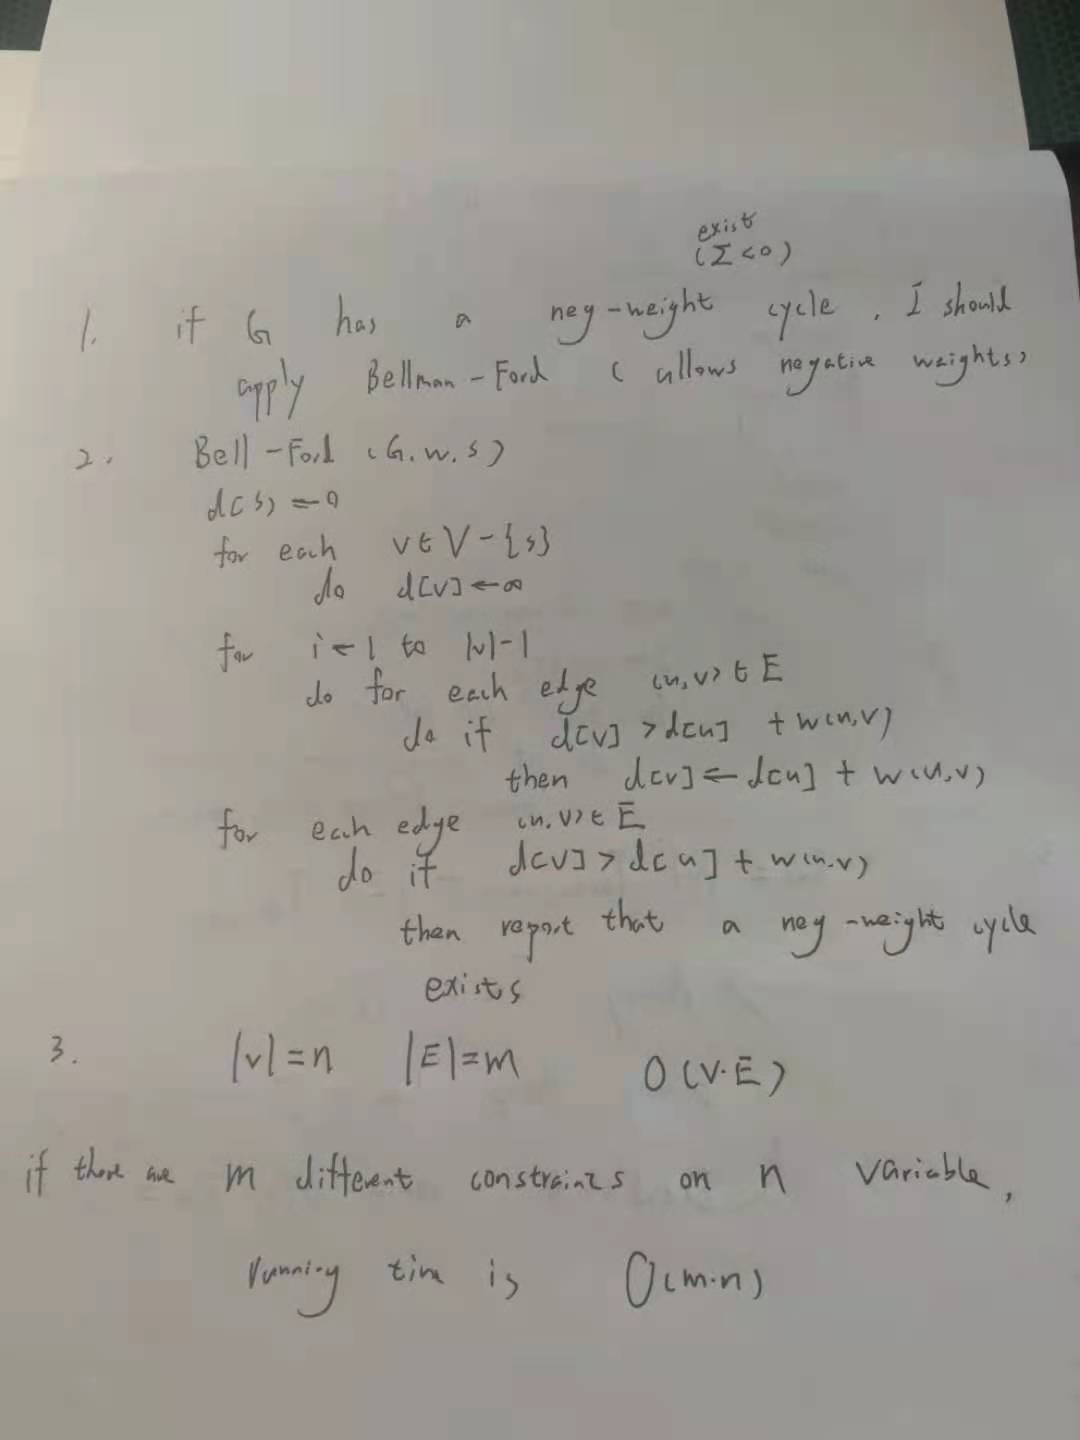 exist
(Σ<0)
1. if G has a neg-weight cycle, I should
apply Bellman-Ford (allows negative weights)
2. Bell-Ford (G.w.s)
d[s] ← 0
for each v∈V-{s}
do d[v]←∞
for i←1 to |V|-1
do for each edge (u,v)∈E
do if d[v] > d[u] + w(u,v)
then d[v] ← d[u] + w(u,v)
for each edge (u,v)∈E
do if d[v] > d[u] + w(u,v)
then report that a neg-weight cycle
exists
3. |V|=n |E|=m O(V·E)
if there are m different constraints on n variable,
running time is O(m·n)